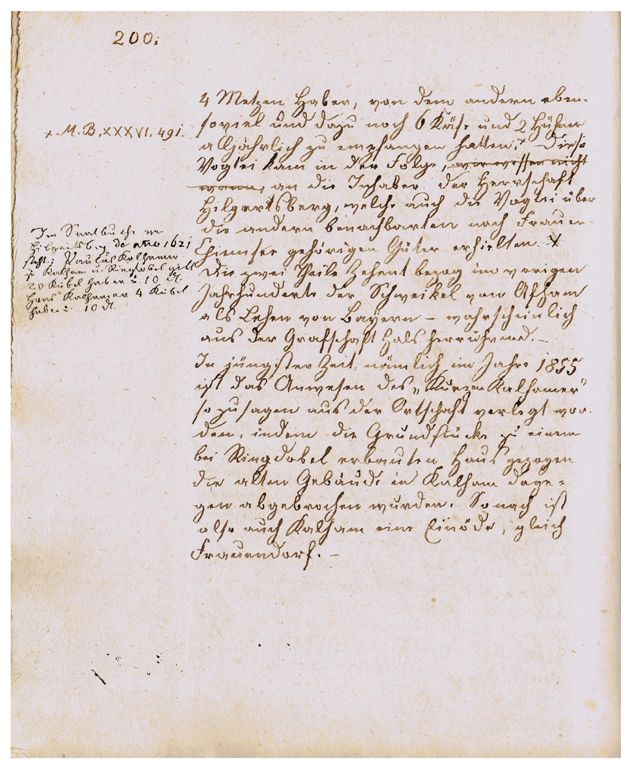 200.
4 Metzen Haber, von dem andern eben-
soviel und dazu noch 6 Käse und 2 Hühner
alljährlich zu empfangen hatten.+ Diese
Vogtei kam in der Folge, wir wissen nicht
wann, an die Inhaber der Herrschaft
Hilgartsberg, welche auch die Vogtei über
die andern benachbarten nach Frauen-
Chiemsee gehörigen Güter erhielten. X
Die zwei Theile Zehent bezog im vorigen
Jahrhunderte der Schweikel von Aßham
als Lehen von Bayern – wahrscheinlich
aus der Grafschaft Hals herrührend. –
In jüngster Zeit, nämlich im Jahre 1855
ist das Anwesen des „Kurzen Kalhamer"
sozusagen aus der Ortschaft verlegt wor-
den, indem die Grundstücke zu einem
bei Ringdobel erbauten Haus gezogen
die alten Gebäude in Kalham dage-
gen abgebrochen wurden. Sonach ist
also auch Kalham eine Einöde, gleich
Frauendorf. –
+ M. B. XXXVI. 491.
Im Saalbuche zu
Hilgartsberg de ano 1621
steht: Paulus Kalhamer
z Kalham u. Ringdobel gilt
20 Kübel Haber u. 10 dl.
Hans Kalhamer 4 Kübel
Haber u. 10 dl.